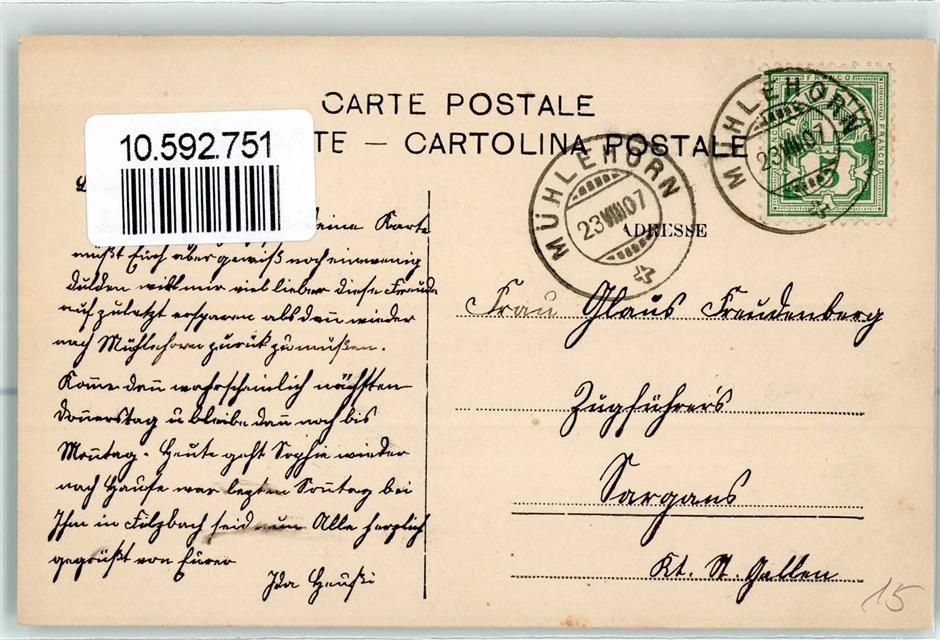 CARTE POSTALE
TE – CARTOLINA POSTALE
10.592.751
MÜHLEHORN
23 VIII 07
MÜHLEHORN
23 VIII 07
FRANCO
FRANCO
5
ADRESSE
Karte
müßt Euch aber gewiß noch ein wenig
dulden will mir viel lieber diese Freude
auf zuletzt ersparen als dann wieder
nach Mühlehorn zurück zu müßen.
Komme dann wahrscheinlich nächsten
Donnerstag u bleibe dann noch bis
Montag. Heute geht Sophie wieder
nach Hause war letzten Sonntag bei
Ihm in Filzbach seid nun Alle herzlich
gegrüßt von Eurer
Ida Heußi
Frau Glaus Freudenberg
Zugführer's
Sargans
Kt. St. Gallen
15